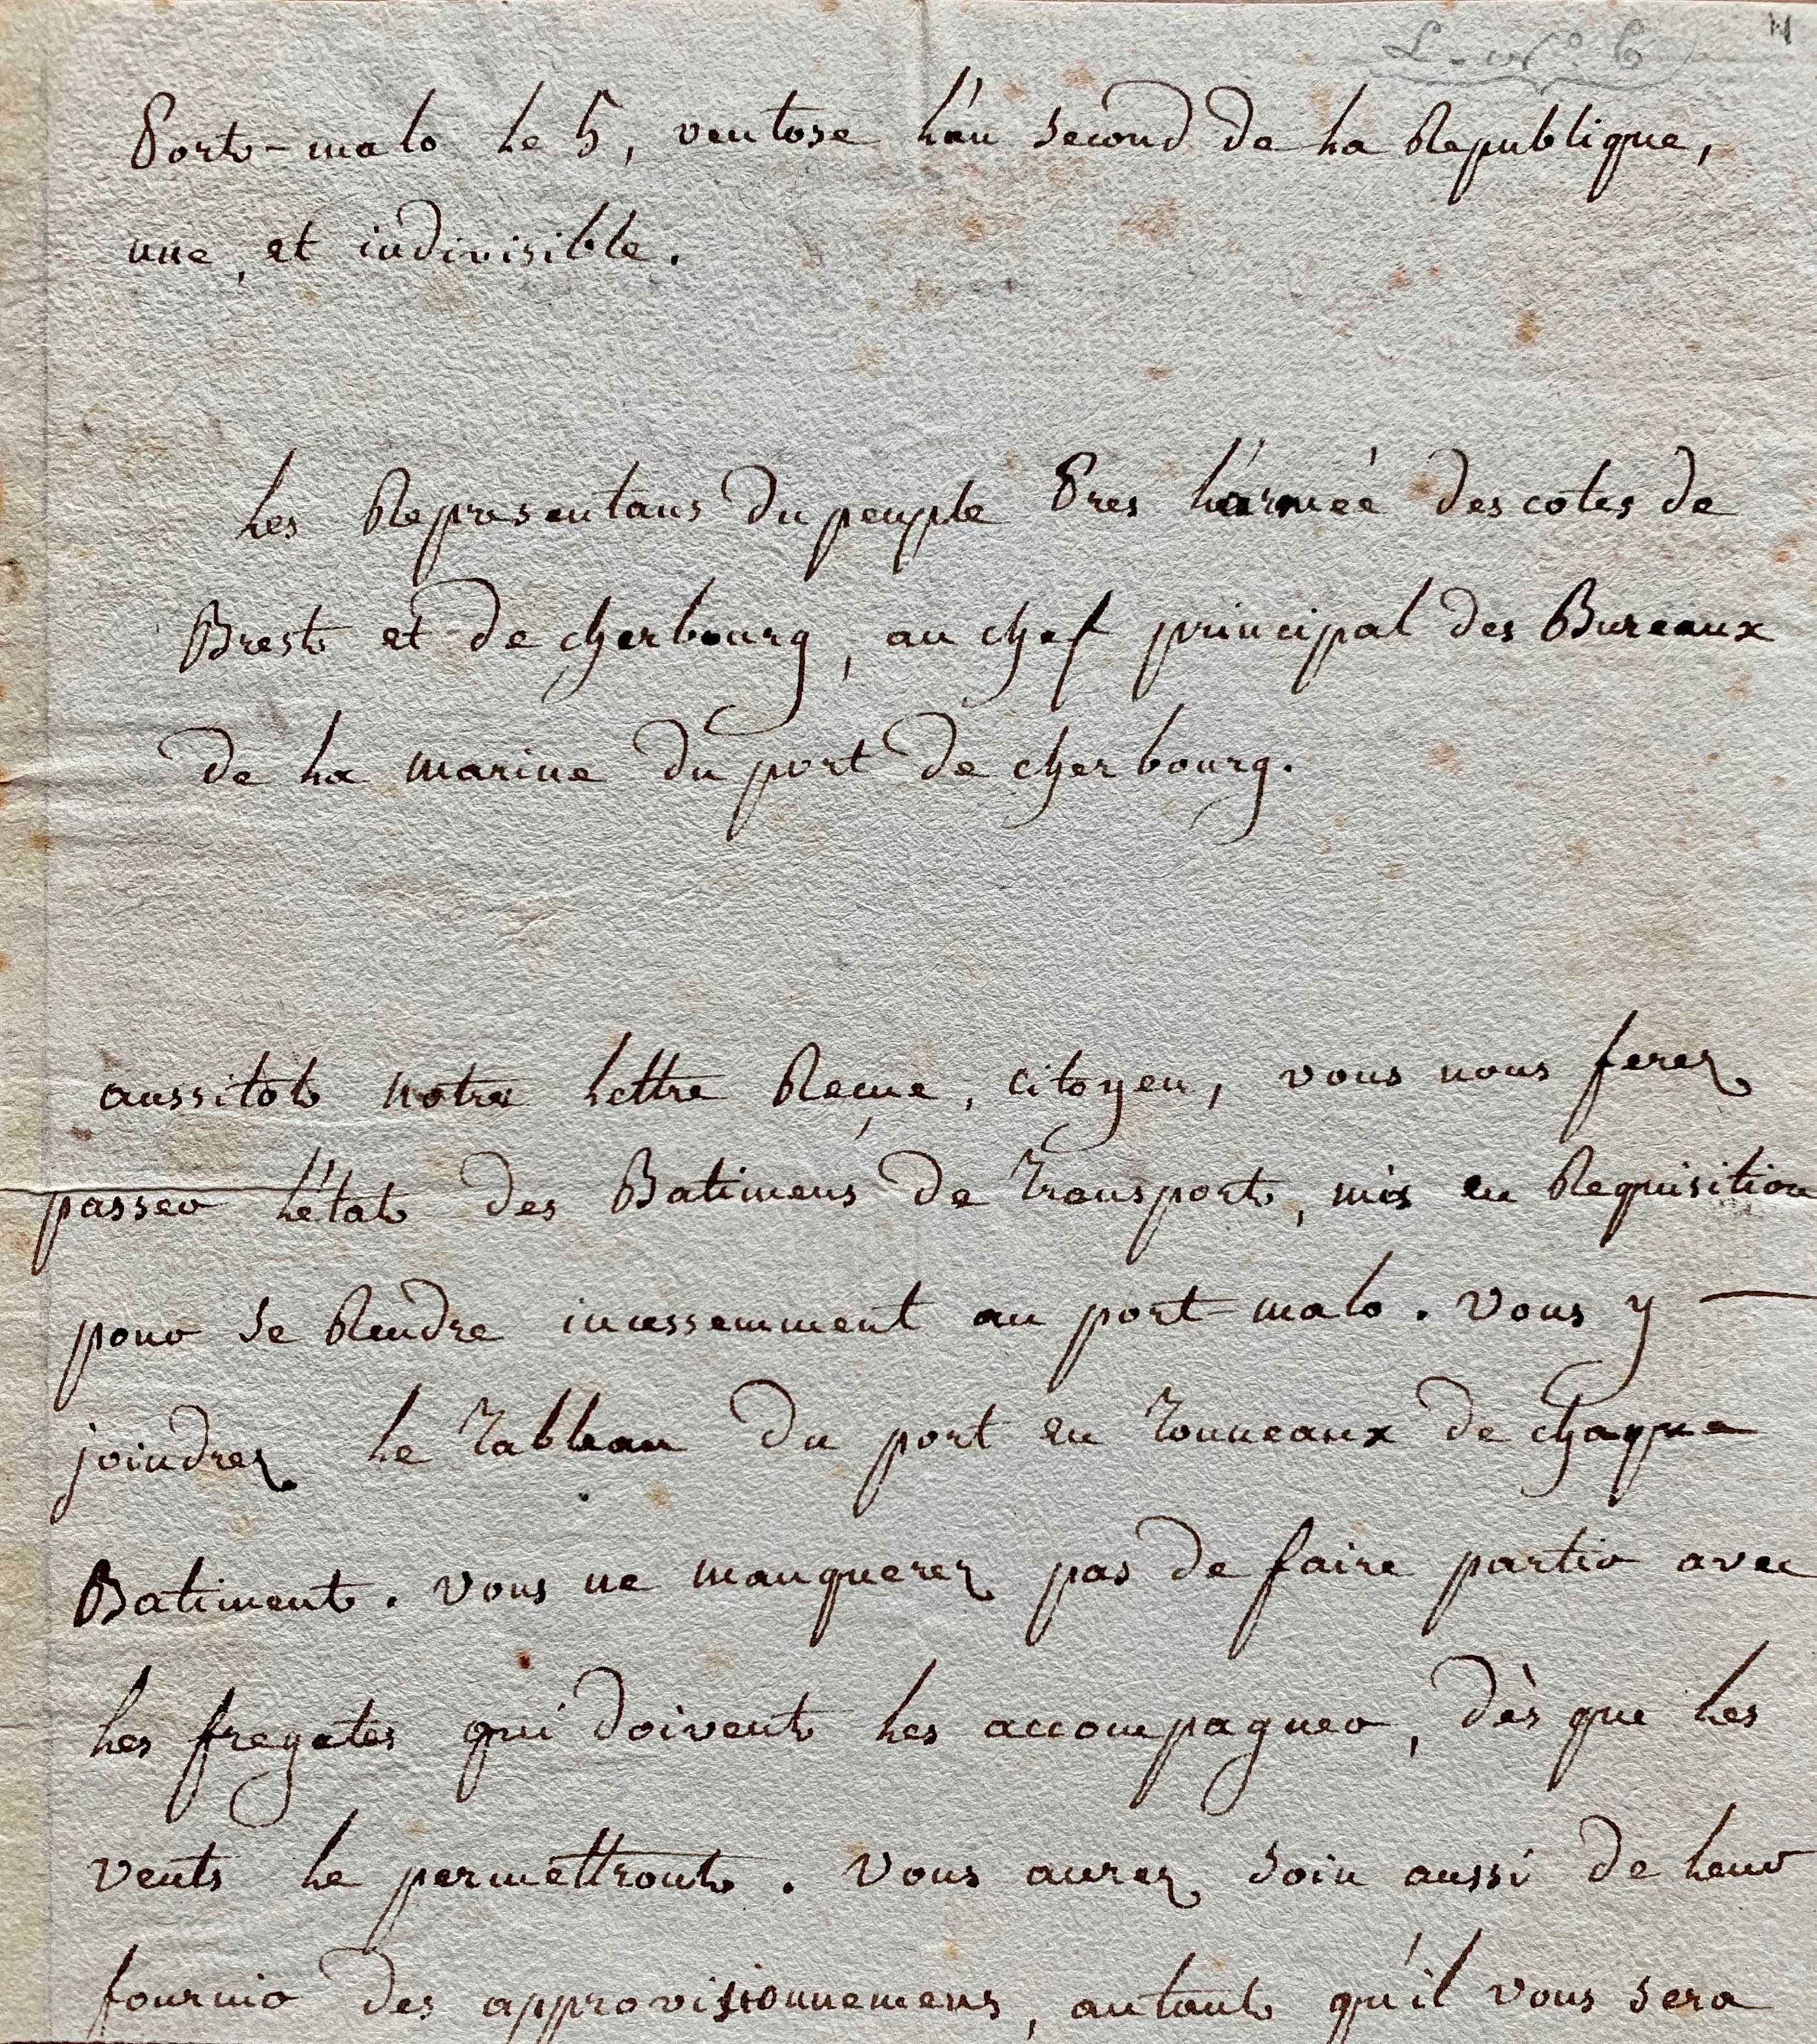 Port-malo le 5, ventose l'an second de la Republique,
une, et indivisible.
les Representans du peuple Pres l'armée des cotes de
Brest et de cherbourg, au chef principal des Bureaux
de la marine du port de cherbourg.
aussitot notre lettre Reçue, citoyen, vous nous ferez
passer l'état des Batimens de Transport, mis en Requisition
pour se Rendre incessemment au port-malo. vous y
joindrez le Tableau du port en Tonneaux de chaque
Batiment. vous ne manquerez pas de faire partir avec
les fregates qui doivent les accompagner, dès que les
vents le permettront. vous aurez soin aussi de leur
fournir des approvisionnemens, autant qu'il vous sera